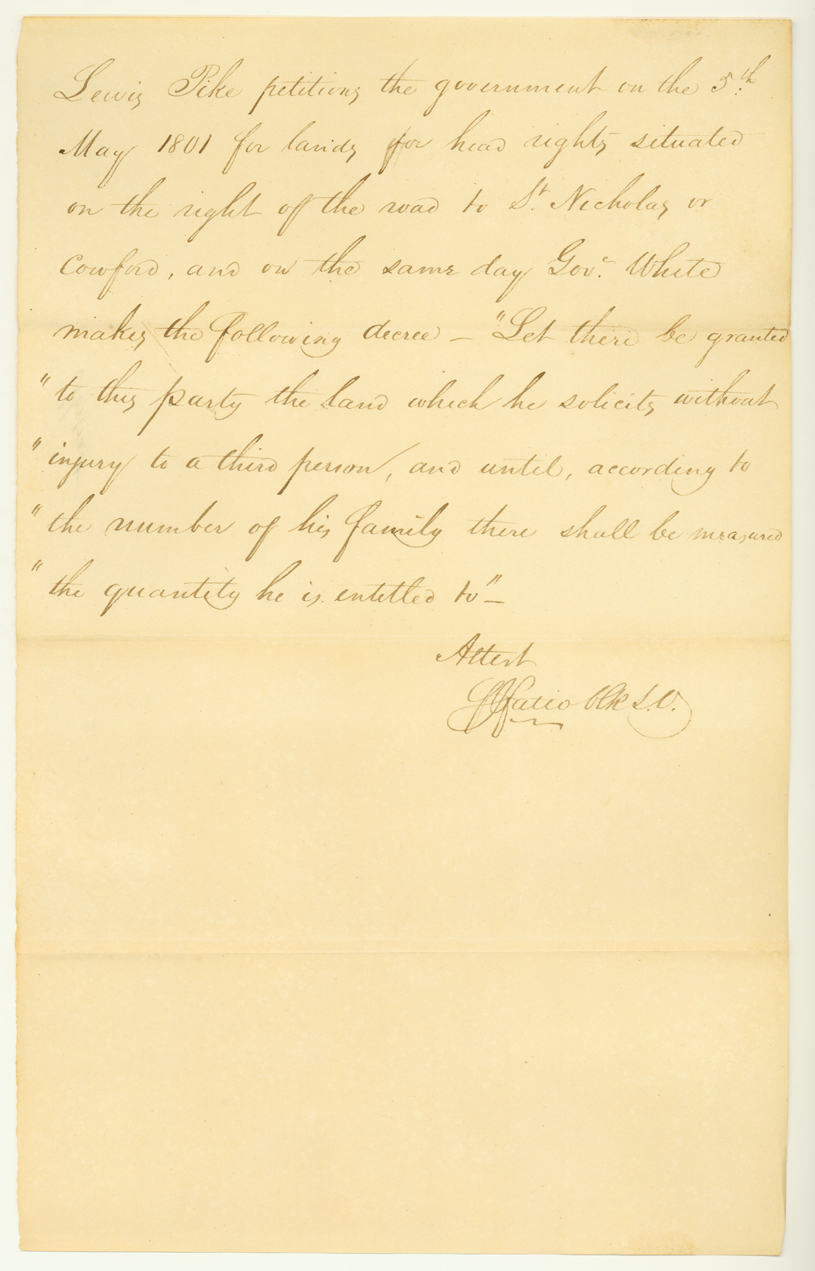 Lewis Pike petitions the government on the 5th
May 1801 for lands for head rights situated
on the right of the road to St. Nicholas or
Cowford, and on the same day Govr. White
makes the following decree – "Let there be granted
"to this party the land which he solicits without
"injury to a third person, and until, according to
"the number of his family there shall be measured
"the quantity he is entitled to" –
Attest
Fatio Clk S.C.